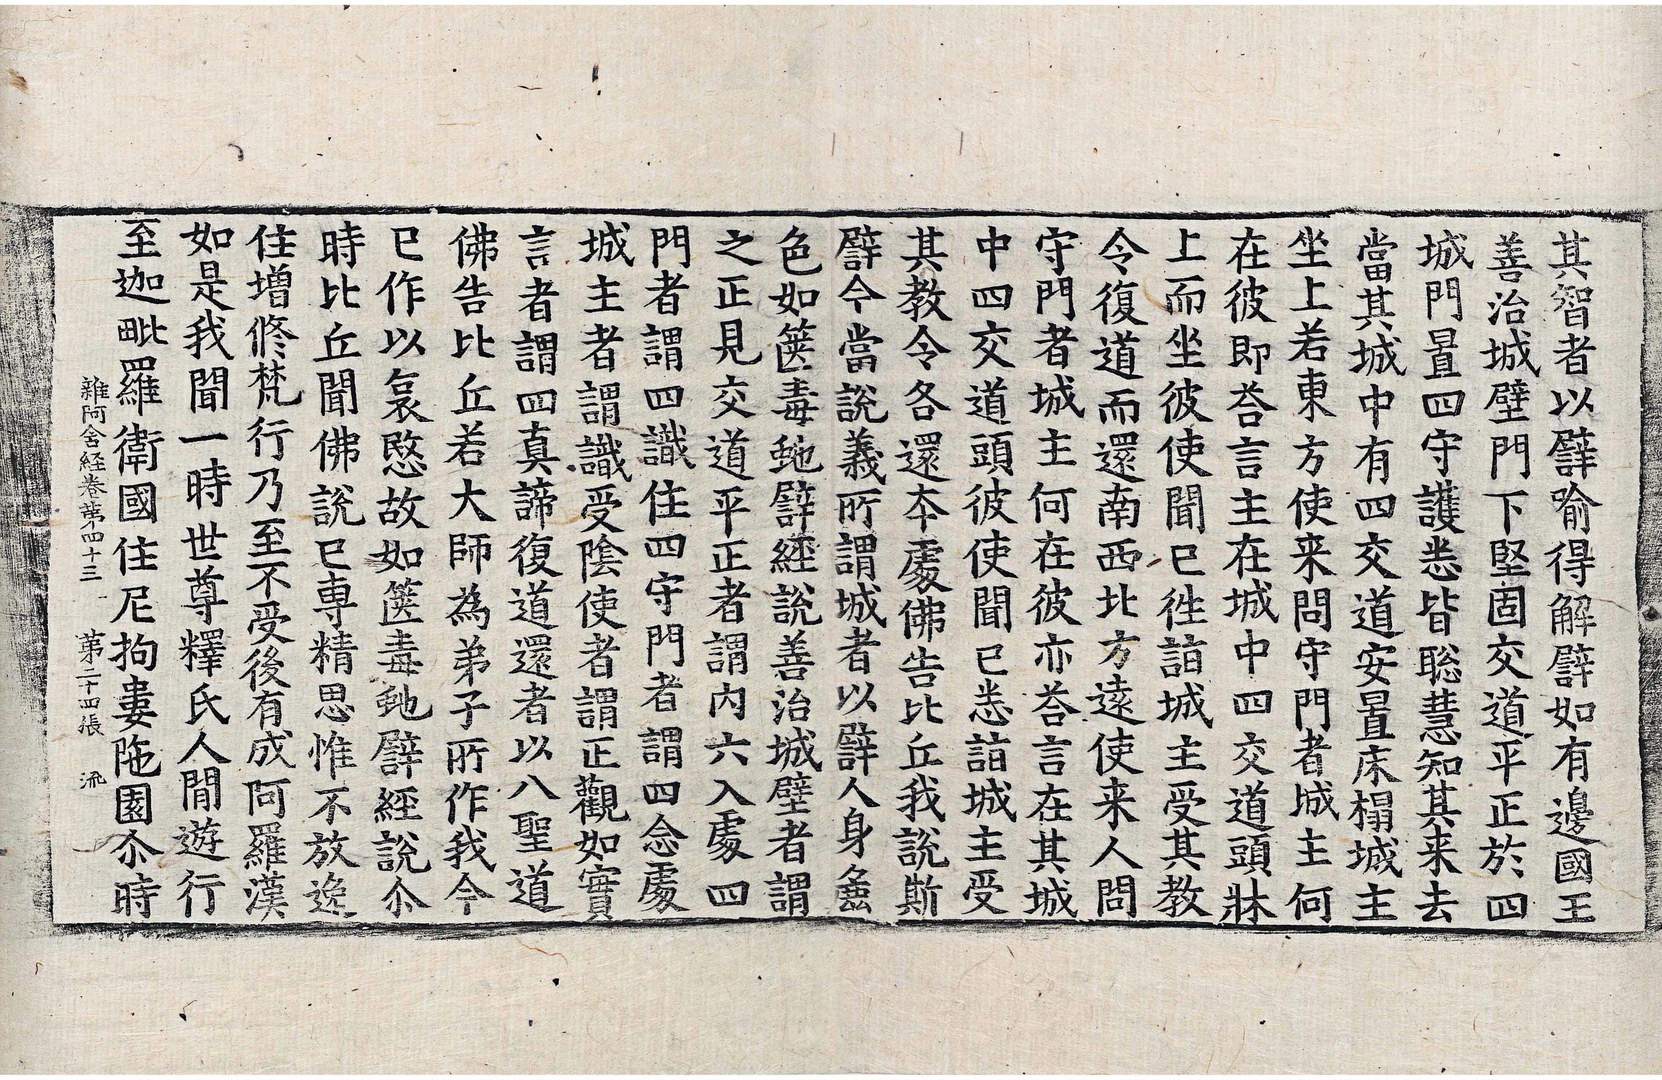 其智者以譬喻得解譬如有邊國王
善治城壁門下堅固交道平正於四
城門置四守護悉皆聡慧知其来去
當其城中有四交道安置床榻城主
坐上若東方使来問守門者城主何
在彼即荅言主在城中四交道頭牀
上而坐彼使聞已徃詣城主受其教
令復道而還南西北方遠使来人問
守門者城主何在彼亦荅言在其城
中四交道頭彼使聞已悉詣城主受
其教令各還夲處佛告比丘我說斯
譬今當說義所謂城者以譬人身麁
色如篋毒虵譬經說善治城壁者謂
之正見交道平正者謂內六入處四
門者謂四識住四守門者謂四念處
城主者謂識受陰使者謂正觀如實
言者謂四真諦復道還者以八聖道
佛告比丘若大師為弟子所作我今
已作以哀愍故如篋毒虵譬經說尒
時比丘聞佛說已專精思惟不放逸
住增修梵行乃至不受後有成阿羅漢
如是我聞一時世尊釋氏人間遊行
至迦毗羅衛國住尼拘婁陁園尒時
雜阿含経卷苐四十三 苐二十四張 流